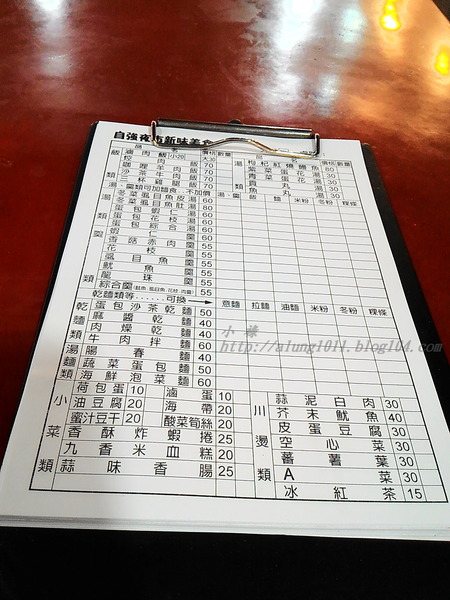 自強夜市新味美食
品 名 價格 數量 品 名 價格 數量
飯類 滷肉飯 小20 大30 湯類 枸杞紅燒鰻魚 80
肉飯 70 紫菜蛋花湯 30
咖哩羊肉飯 70 青菜蛋花湯 30
沙茶牛肉飯 70 貢丸湯 30
雞腿飯 70 魚丸湯 30
湯、羹類可加麵食…不加價 湯 羹 飯 麵 米粉 冬粉 粿條
冬菜虱目魚皮湯 60
冬菜虱目魚肚湯 60
蛋包蝦仁湯 60
蛋包花枝湯 60
蛋包綜合湯 60
羹類 蝦仁羹 60
香菇赤肉羹 55
花枝羹 55
虱目魚羹 55
魷魚羹 55
龍珠羹 55
綜合羹 55
乾麵類等……可換→ 意麵 拉麵 油麵 米粉 冬粉 粿條
乾麵類 蛋包沙茶乾麵 50
麻醬乾麵 40
肉燥乾麵 40
牛肉拌麵 60
湯麵類 陽春麵 40
蔬菜蛋包麵 50
海鮮泡菜麵 60
小菜類 荷包蛋 10 滷蛋 10 川燙類 蒜泥白肉 30
油豆腐 20 海帶 20 芥末魷魚 40
蜜汁豆干 20 酸菜筍絲 20 皮蛋豆腐 30
香酥炸蝦捲 25 空心菜 30
九香米血糕 20 蕃薯葉 30
蒜味香腸 25 A菜 30
冰紅茶 15
小 華
http://alung1011.blog104.com